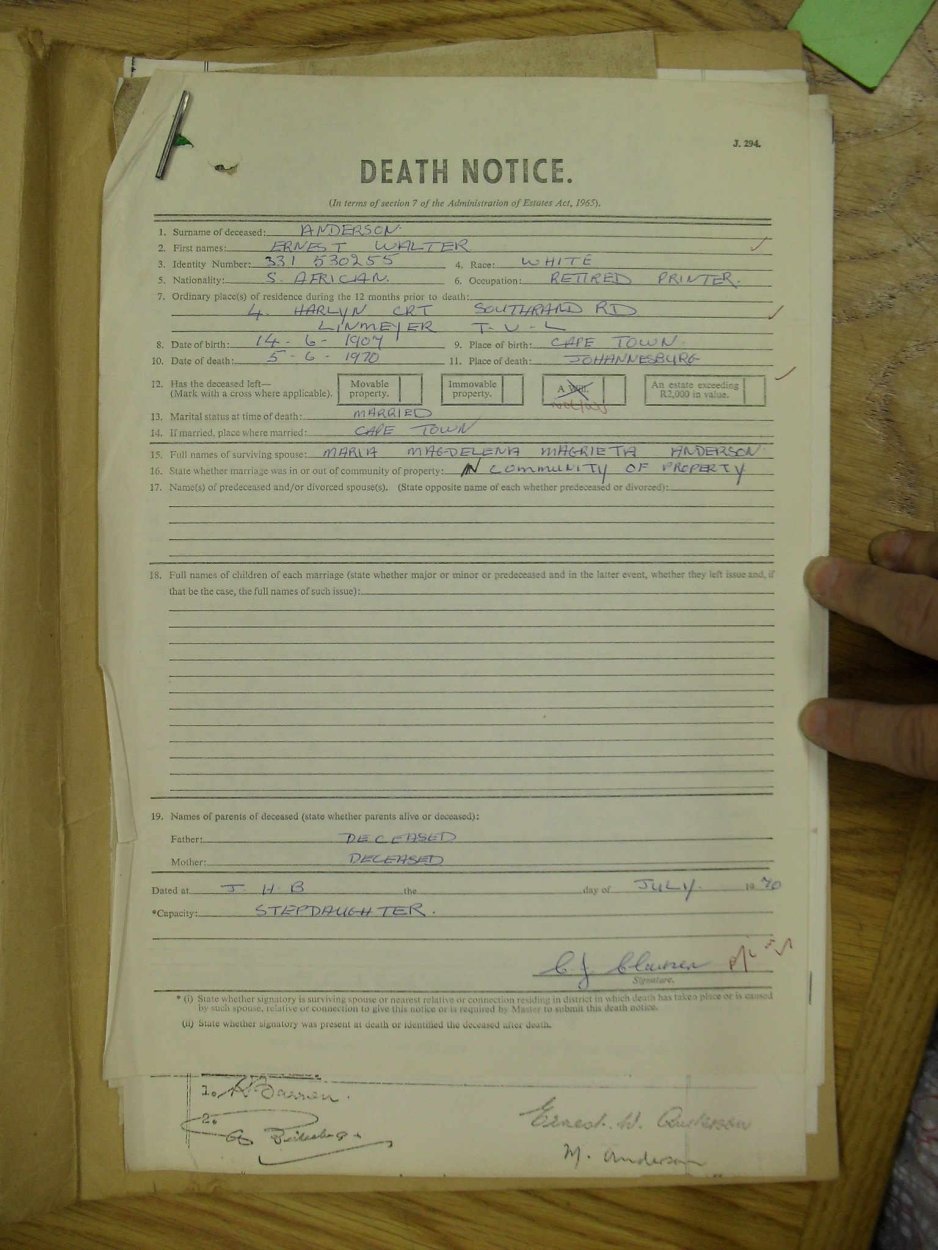 J. 294.
DEATH NOTICE.
(In terms of section 7 of the Administration of Estates Act, 1965).
1. Surname of deceased: ANDERSON.
2. First names: ERNEST WALTER
3. Identity Number: 331 530255 4. Race: WHITE
5. Nationality: S. AFRICIAN. 6. Occupation: RETIRED PRINTER.
7. Ordinary place(s) of residence during the 12 months prior to death:
4. HARLYN CRT SOUTHRAND RD
LINMEYER T-V-L
8. Date of birth: 14-6-1907 9. Place of birth: CAPE TOWN.
10. Date of death: 5-6-1970 11. Place of death: JOHANNESBURG
12. Has the deceased left— Movable Immovable A Will. An estate exceeding
(Mark with a cross where applicable). property. property. R2,000 in value.
13. Marital status at time of death: MARRIED
14. If married, place where married: CAPE TOWN
15. Full names of surviving spouse: MARIA MAGDELENA MAGRIETA ANDERSON.
16. State whether marriage was in or out of community of property: IN COMMUNITY OF PROPERTY
17. Name(s) of predeceased and/or divorced spouse(s). (State opposite name of each whether predeceased or divorced):
18. Full names of children of each marriage (state whether major or minor or predeceased and in the latter event, whether they left issue and, if
that be the case, the full names of such issue):
19. Names of parents of deceased (state whether parents alive or deceased):
Father: DECEASED
Mother: DECEASED
Dated at J. H. B the day of JULY. 1970
*Capacity: STEPDAUGHTER.
C J
Signature.
* (i) State whether signatory is surviving spouse or nearest relative or connection residing in district in which death has taken place or is caused
by such spouse, relative or connection to give this notice or is required by Master to submit this death notice.
(ii) State whether signatory was present at death or identified the deceased after death.
1.
2.
Ernest. W. Anderson
M. Anderson